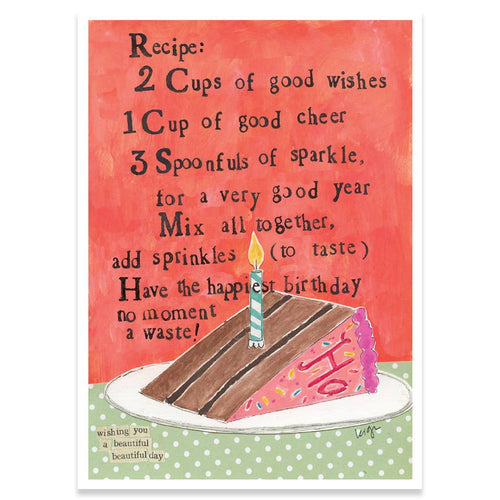 Recipe:
2 Cups of good wishes
1 Cup of good cheer
3 Spoonfuls of sparkle,
for a very good year
Mix all together,
add sprinkles (to taste)
Have the happiest birthday
no moment
a waste!
wishing you
a beautiful
beautiful day